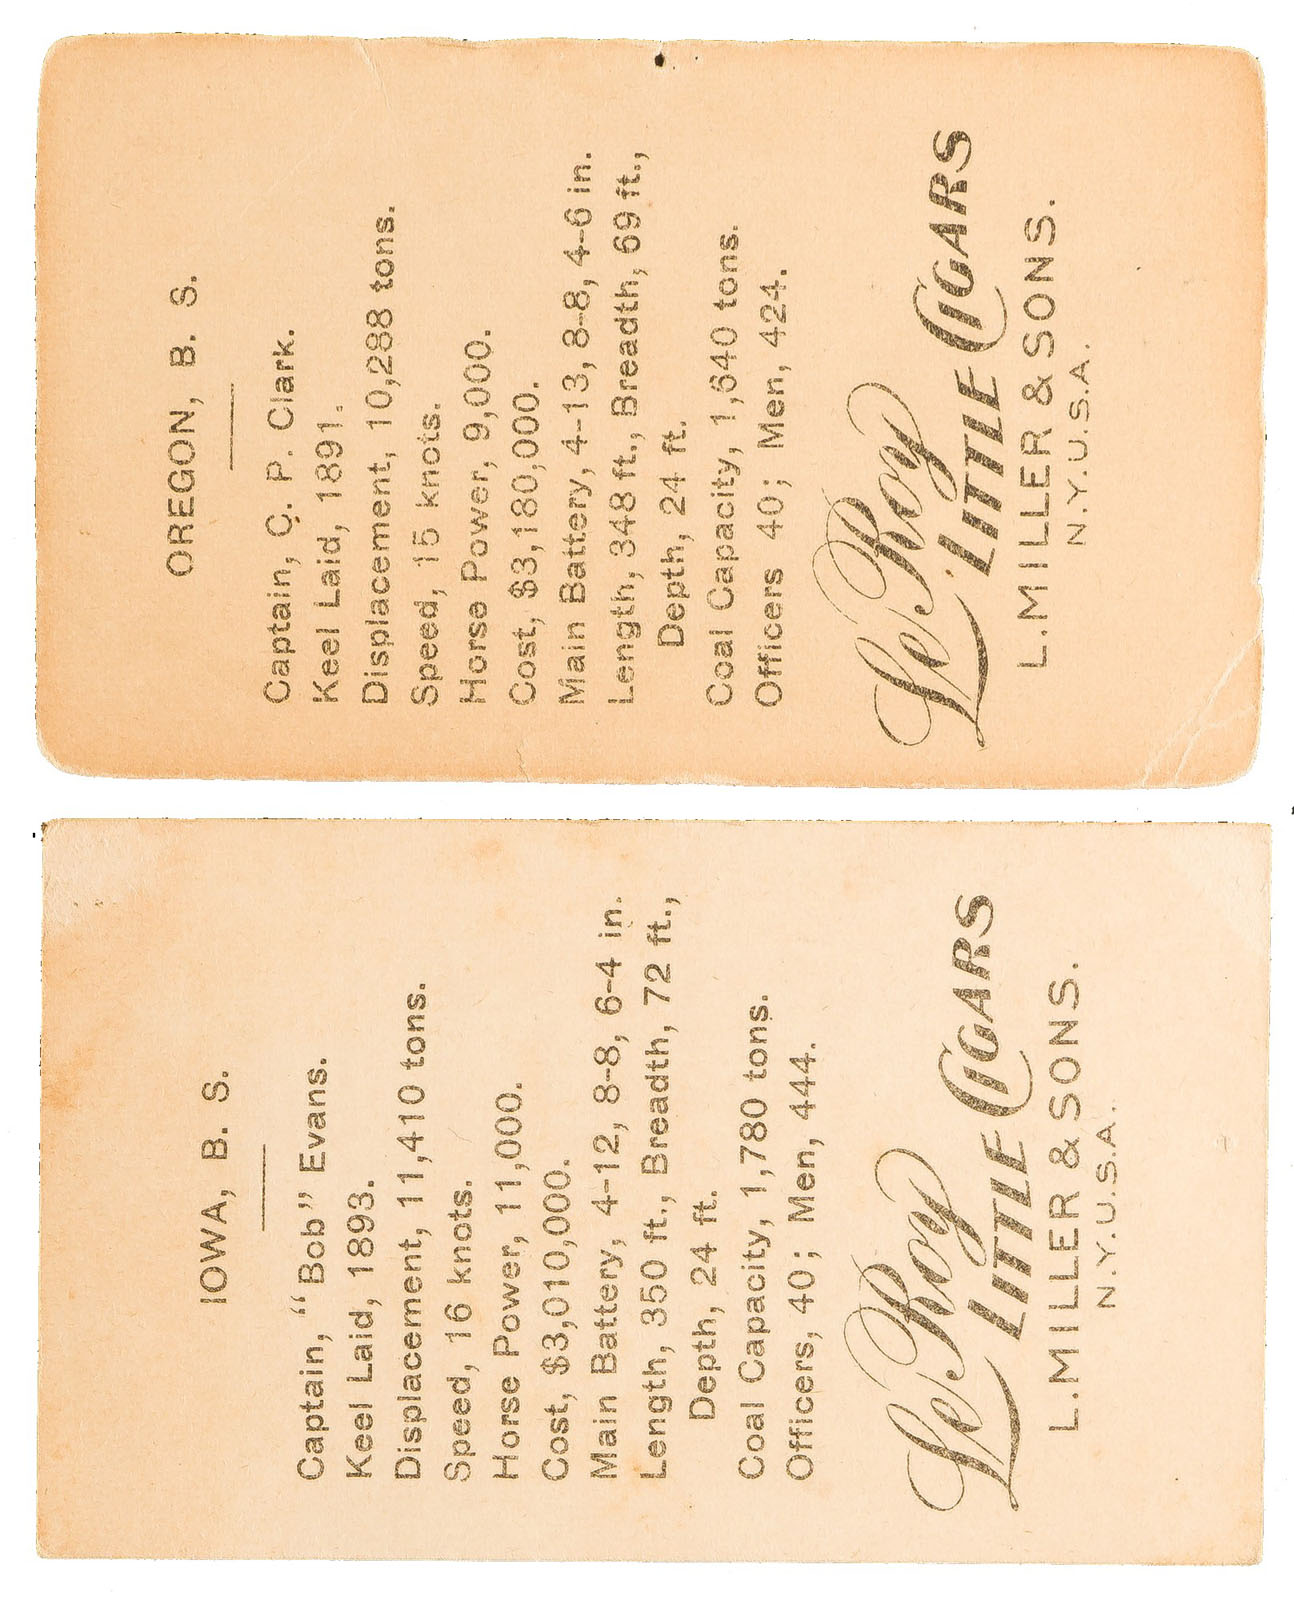 OREGON, B. S.
Captain, C. P. Clark.
Keel Laid, 1891.
Displacement, 10,288 tons.
Speed, 15 knots.
Horse Power, 9,000.
Cost, $3,180,000.
Main Battery, 4-13, 8-8, 4-6 in.
Length, 348 ft., Breadth, 69 ft.,
Depth, 24 ft.
Coal Capacity, 1,640 tons.
Officers 40; Men, 424.
Le Roy
LITTLE CIGARS
L. MILLER & SONS.
N.Y.U.S.A.
IOWA, B. S.
Captain, "Bob" Evans.
Keel Laid, 1893.
Displacement, 11,410 tons.
Speed, 16 knots.
Horse Power, 11,000.
Cost, $3,010,000.
Main Battery, 4-12, 8-8, 6-4 in.
Length, 350 ft., Breadth, 72 ft.,
Depth, 24 ft.
Coal Capacity, 1,780 tons.
Officers, 40; Men, 444.
Le Roy
LITTLE CIGARS
L. MILLER & SONS.
N.Y.U.S.A.